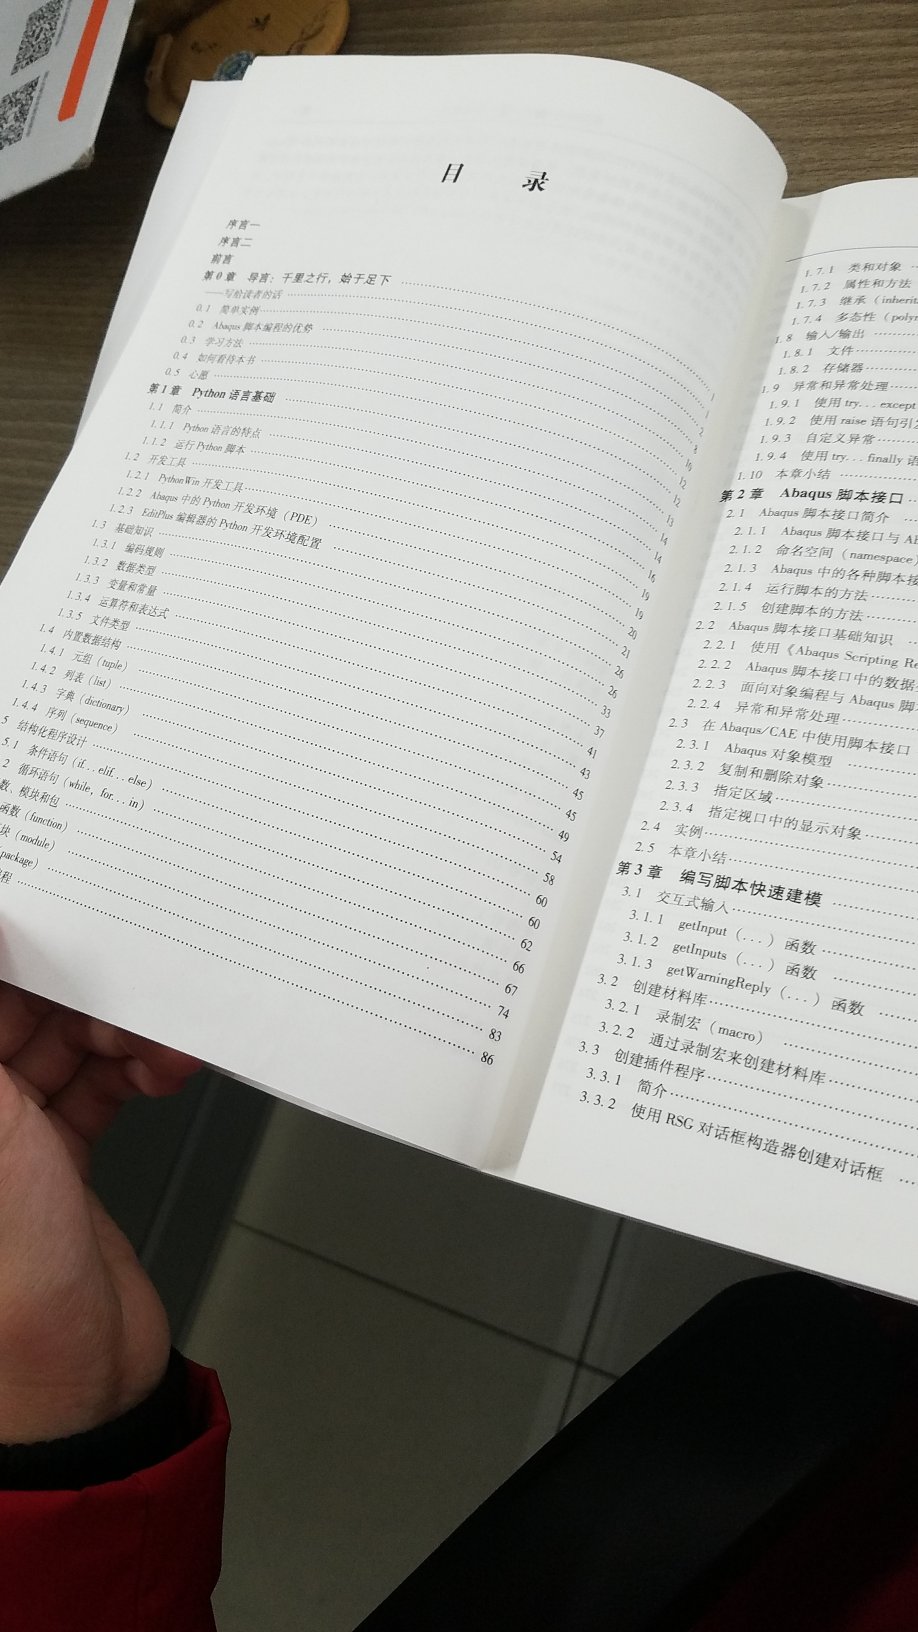 目 录
序言一
序言二
前言
第0章 导言：千里之行，始于足下
——写给读者的话 1
0.1 简单实例 1
0.2 Abaqus 脚本编程的优势 2
0.3 学习方法 8
0.4 如何看待本书 10
0.5 心愿 12
第1章 Python 语言基础 12
1.1 简介 13
1.1.1 Python 语言的特点 14
1.1.2 运行 Python 脚本 14
1.2 开发工具 16
1.2.1 PythonWin 开发工具 19
1.2.2 Abaqus 中的 Python 开发环境（PDE） 19
1.2.3 EditPlus 编辑器的 Python 开发环境配置 20
1.3 基础知识 21
1.3.1 编码规则 26
1.3.2 数据类型 26
1.3.3 变量和常量 33
1.3.4 运算符和表达式 37
1.3.5 文件类型 41
1.4 内置数据结构 43
1.4.1 元组（tuple） 45
1.4.2 列表（list） 45
1.4.3 字典（dictionary） 49
1.4.4 序列（sequence） 54
5 结构化程序设计 58
5.1 条件语句（if...elif...else） 60
2 循环语句（while，for...in） 60
数、模块和包 62
函数（function） 66
块（module） 67
（package） 74
程 83
86
1.7.1 类和对象
1.7.2 属性和方法
1.7.3 继承（inherit
1.7.4 多态性（polym
1.8 输入/输出
1.8.1 文件
1.8.2 存储器
1.9 异常和异常处理
1.9.1 使用 try...except
1.9.2 使用 raise 语句引发
1.9.3 自定义异常
1.9.4 使用 try...finally 语
1.10 本章小结
第2章 Abaqus 脚本接口
2.1 Abaqus 脚本接口简介
2.1.1 Abaqus 脚本接口与 Ab
2.1.2 命名空间（namespace）
2.1.3 Abaqus 中的各种脚本接
2.1.4 运行脚本的方法
2.1.5 创建脚本的方法
2.2 Abaqus 脚本接口基础知识
2.2.1 使用《Abaqus Scripting Re
2.2.2 Abaqus 脚本接口中的数据
2.2.3 面向对象编程与 Abaqus 脚
2.2.4 异常和异常处理
2.3 在 Abaqus/CAE 中使用脚本接口
2.3.1 Abaqus 对象模型
2.3.2 复制和删除对象
2.3.3 指定区域
2.3.4 指定视口中的显示对象
2.4 实例
2.5 本章小结
第3章 编写脚本快速建模
3.1 交互式输入
3.1.1 getInput（...）函数
3.1.2 getInputs（...）函数
3.1.3 getWarningReply（...）函数
3.2 创建材料库
3.2.1 录制宏（macro）
3.2.2 通过录制宏来创建材料库
3.3 创建插件程序
3.3.1 简介
3.3.2 使用 RSG 对话框构造器创建对话框